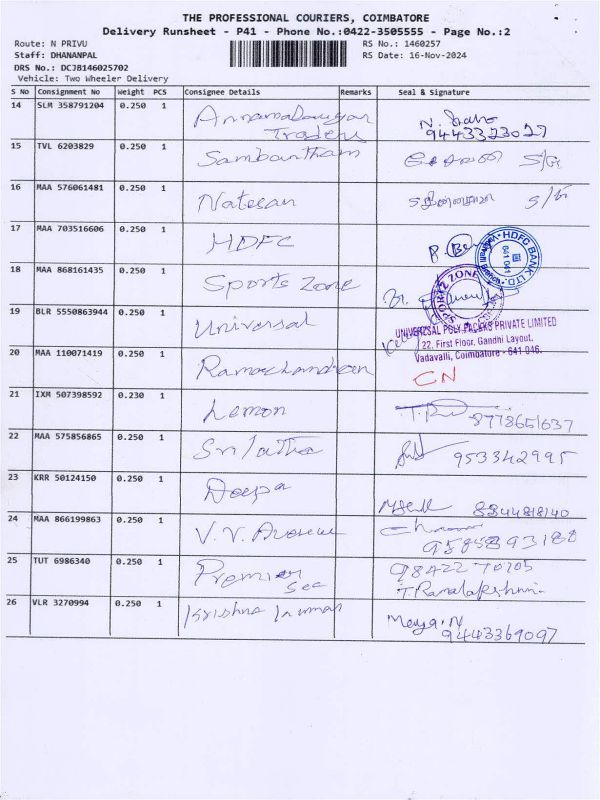 THE PROFESSIONAL COURIERS, COIMBATORE
Delivery Runsheet - P41 - Phone No.:0422-3505555 - Page No.:2
Route: N PRIVU RS No.: 1460257
Staff: DHANANPAL RS Date: 16-Nov-2024
DRS No.: DCJB146025702
Vehicle: Two Wheeler Delivery
S No Consignment No Weight PCS Consignee Details Remarks Seal & Signature
14 SLM 358791204 0.250 1 Traders 9443323027
15 TVL 6203829 0.250 1 Sambantham
16 MAA 576061481 0.250 1 Natesan
17 MAA 703516606 0.250 1 HDFC
HDFC BANK LTD
18 MAA 868161435 0.250 1 Sports Zone
SPORTZ ZONE
19 BLR 5550863944 0.250 1 Universal
UNIVERSAL POLY PACKS PRIVATE LIMITED
22, First Floor, Gandhi Layout,
Vadavalli, Coimbatore - 641 046.
20 MAA 110071419 0.250 1 Ramachandran CN
21 IXM 507398592 0.230 1 Lemon 8778651637
22 MAA 575856865 0.250 1 Srilatha 953342995
23 KRR 50124150 0.250 1 Deepa 8344818140
24 MAA 866199863 0.250 1 V.V. Avenue
25 TUT 6986340 0.250 1 Premier 98422 70105
T. Ramalakshmi
26 VLR 3270994 0.250 1 Krishna Kumar
9443369097